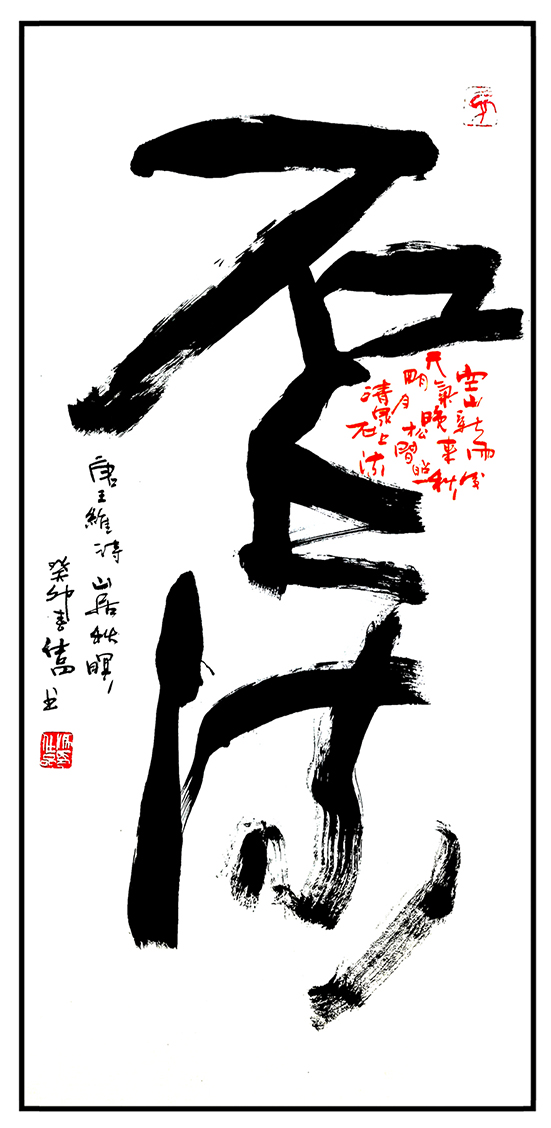 石上流
空山新雨後
天氣晚来秋
明月松間照
清泉石上流
唐王維诗山居秋暝
癸卯春书